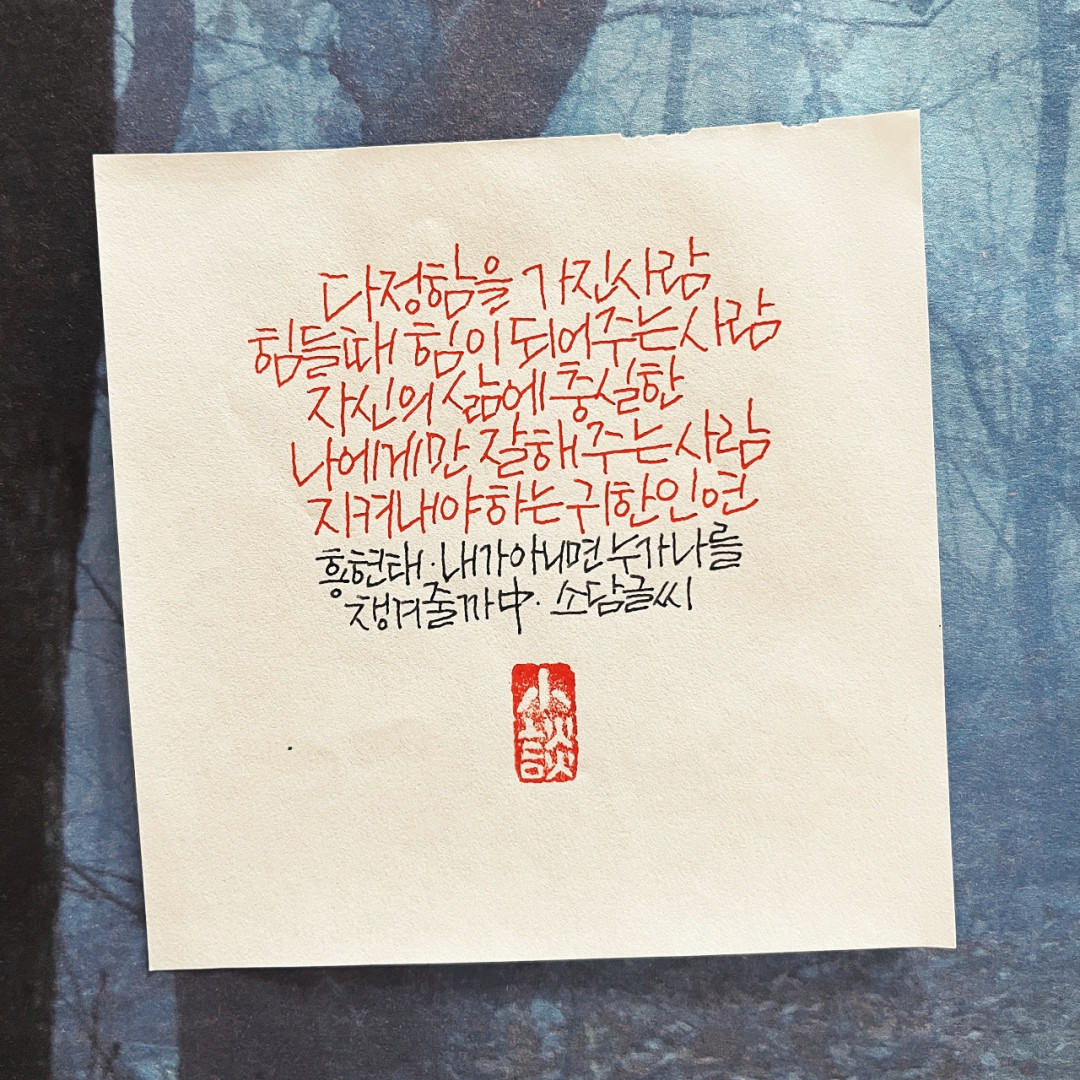 다정함을 가진사람
힘들때 힘이 되어주는사람
자신의 삶에 충실한
나에게만 잘해주는사람
지켜내야하는귀한인연
홍현태·내가아니면누가나를
챙겨줄까中· 소담글씨
小
談